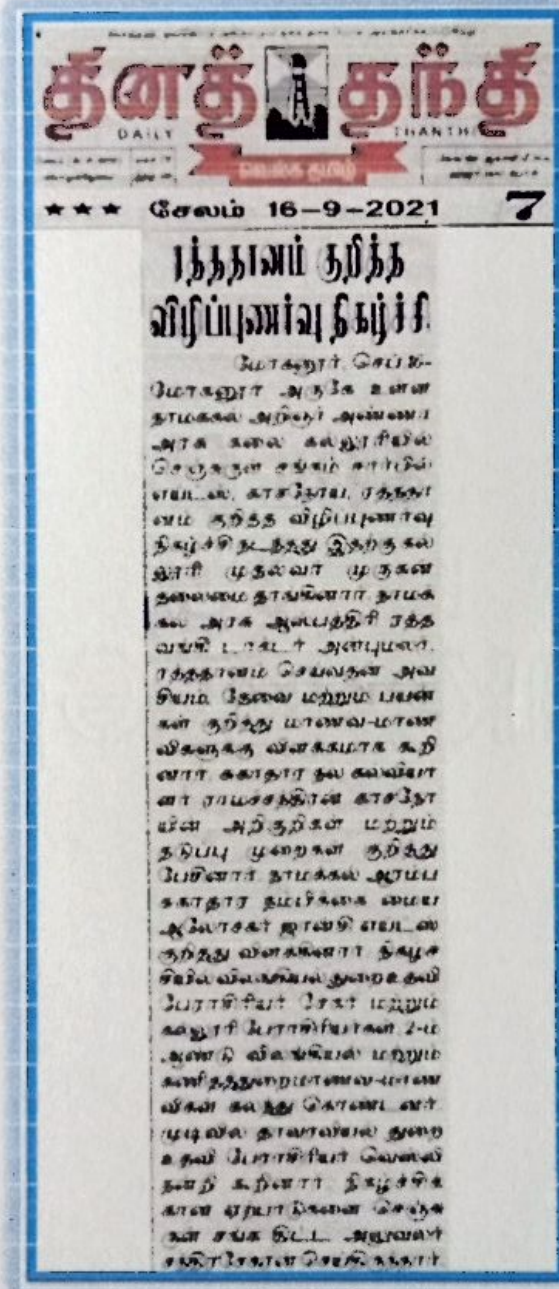 தினத் தந்தி
DAILY THANTHI
வெல்க தமிழ்
★★★ சேலம் 16-9-2021 7
ரத்ததானம் குறித்த
விழிப்புணர்வு நிகழ்ச்சி
மோகனூர், செப்.16-
மோகனூர் அருகே உள்ள
நாமக்கல் அறிஞர் அண்ணா
அரசு கலை கல்லூரியில்
செஞ்சுருள் சங்கம் சார்பில்
எய்ட்ஸ், காசநோய், ரத்ததா
னம் குறித்த விழிப்புணர்வு
நிகழ்ச்சி நடந்தது இதற்கு கல்
லூரி முதல்வர் முருகன்
தலைமை தாங்கினார். நாமக்
கல் அரசு ஆஸ்பத்திரி ரத்த
வங்கி டாக்டர் அன்புமலர்,
ரத்ததானம் செய்வதன் அவ
சியம், தேவை மற்றும் பயன்
கள் குறித்து மாணவ-மாண
விகளுக்கு விளக்கமாக கூறி
னார். சுகாதார நல கல்வியா
ளர் ராமச்சந்திரன் காசநோ
யின் அறிகுறிகள் மற்றும்
தடுப்பு முறைகள் குறித்து
பேசினார். நாமக்கல் ஆரம்ப
சுகாதார நம்பிக்கை மைய
ஆலோசகர் ஜான்சி எய்ட்ஸ்
குறித்து விளக்கினார். நிகழ்ச்
சியில் விலங்கியல் துறை உதவி
பேராசிரியர் சேகர் மற்றும்
கல்லூரி பேராசிரியர்கள் 2-ம்
ஆண்டு விலங்கியல் மற்றும்
கணிதத்துறை மாணவ-மாண
விகள் கலந்து கொண்டனர்.
முடிவில் தாவரவியல் துறை
உதவி பேராசிரியர் வெஸ்லி
நன்றி கூறினார். நிகழ்ச்சிக்
கான ஏற்பாடுகளை செஞ்சு
ருள் சங்க திட்ட அலுவலர்
சந்திரசேகரன் செய்திருந்தார்.